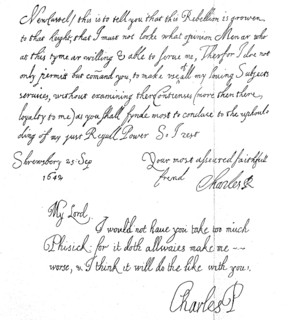 Newcastell this is to tell you that this Rebellion is growen
to that height, that I must not looke what opinion Men ar who
at this tyme ar willing & able to serve me, Therfor I doe not
only permit but comand you, to make use of all my loving Subjects
services, without examining ther Contienses (more then there
loyalty to me) as you shall fynde most to conduce to the uphoul-
ding of my just Regall Power So I rest
Shrewsbery 23 Sep
Your most asseured faithfull
1642
frend Charles R
My Lord
I would not have you take too much
Phisick: for it doth allwaies make me —
worse, & I think it will do the like with you.
Charles P